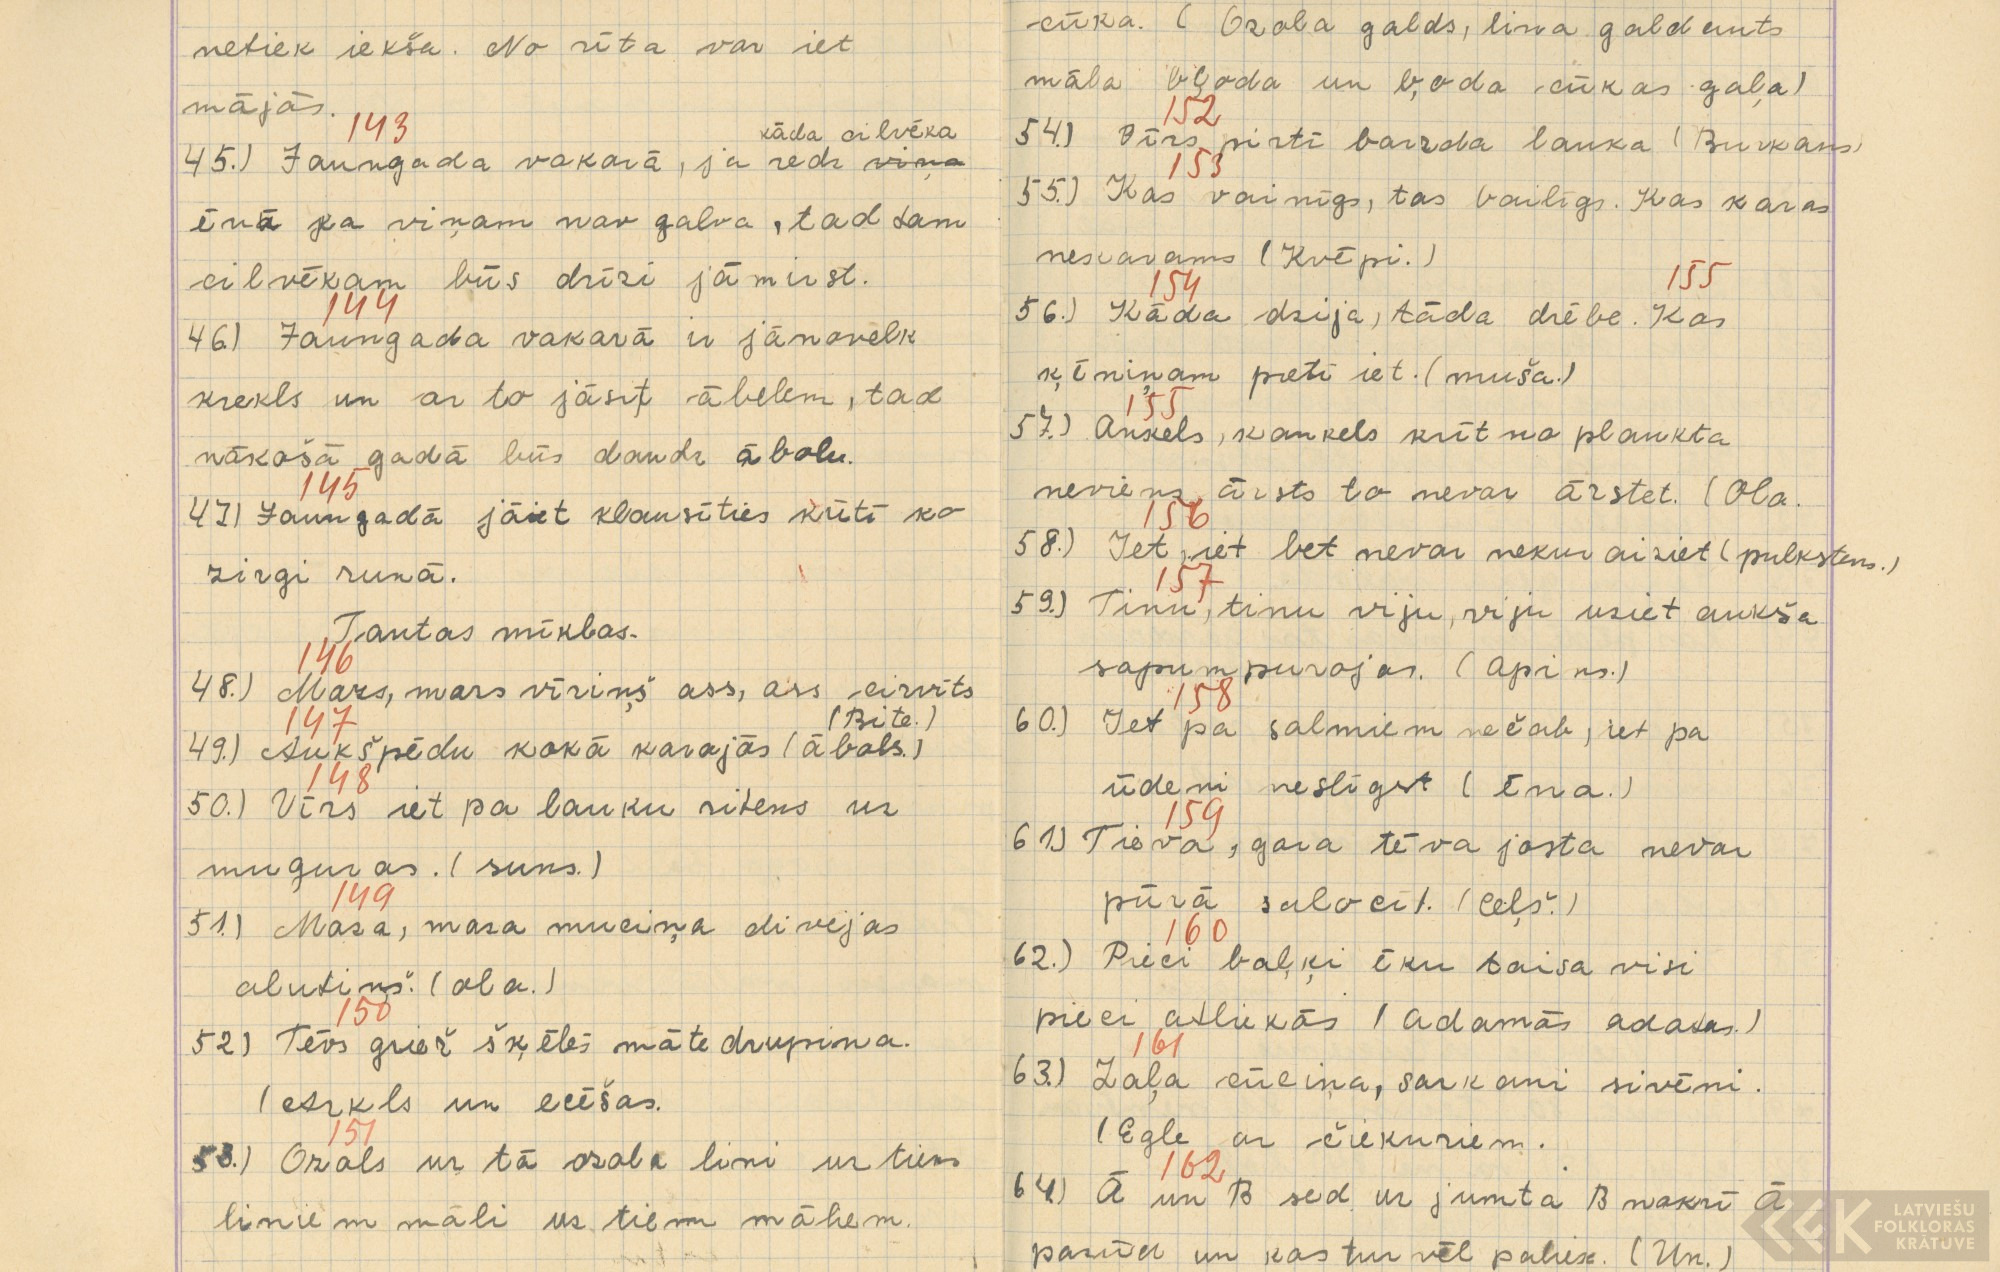 netiek iekša. No rīta var iet
mājās.
143
kāda cilvēka
45.) Jaungada vakarā, ja redz viņa
ēnā ka viņam nav galva, tad tam
cilvēkam būs drīzi jāmirst.
144
46.) Jaungada vakarā ir jānovelk
krekls un ar to jāsit ābelem, tad
nākošā gadā būs daudz ābolu.
145
47.) Jaungadā jāiet klausīties kūtī ko
zirgi runā.
Tautas mīklas.
146
48.) Mazs, mazs vīriņš ass, ass cirvīts
(Bite.)
147
49.) Aukšpēdu kokā karajās (ābols.)
148
50.) Vīrs iet pa lauku ritens uz
muguras. (suns.)
149
51.) Maza, maza muciņa divejas
alutiņš. (ola.)
150
52) Tēvs griež šķēlēs māte drupina.
(Arkls un ecēšas.
151
53.) Ozols uz tā ozola lini uz tiem
liniem māli uz tiem māliem.
cūka. (Ozola galds, lina galdauts
māla bļoda un bļoda cūkas gaļa)
152
54.) Vīrs pirtī barzda lauka (Burkans)
153
55.) Kas vainīgs, tas bailīgs. Kas karas
neskarams (Kvēpi.)
154
155
56.) Kāda dzija, tāda drēbe. Kas
ķēniņam pretī iet. (muša.)
155
57.) Ankels, kankels krīt no plaukta
neviens ārsts to nevar ārstet. (Ola.
156
58.) Iet, iet bet nevar nekur aiziet (pulkstens.)
157
59.) Tinu, tinu viju, viju uziet aukša
sapumpurojas. (apins.)
158
60.) Iet pa salmiem nečab, iet pa
ūdeni neslīgst (Ēna.)
159
61.) Tieva, gara tēva josta nevar
pūrā salocīt. (Ceļš.)
160
62.) Pieci baļķi ēku taisa visi
pieci atliekās (adamās adatas.)
161
63.) Zaļa cūciņa, sarkani sivēni.
(Egle ar čiekuriem.
162
64.) Ā un B sed uz jumta B nokrī Ā
pazūd un kas tur vēl paliek. (Un.)
LATVIEŠU
FOLKLORAS
KRĀTUVE